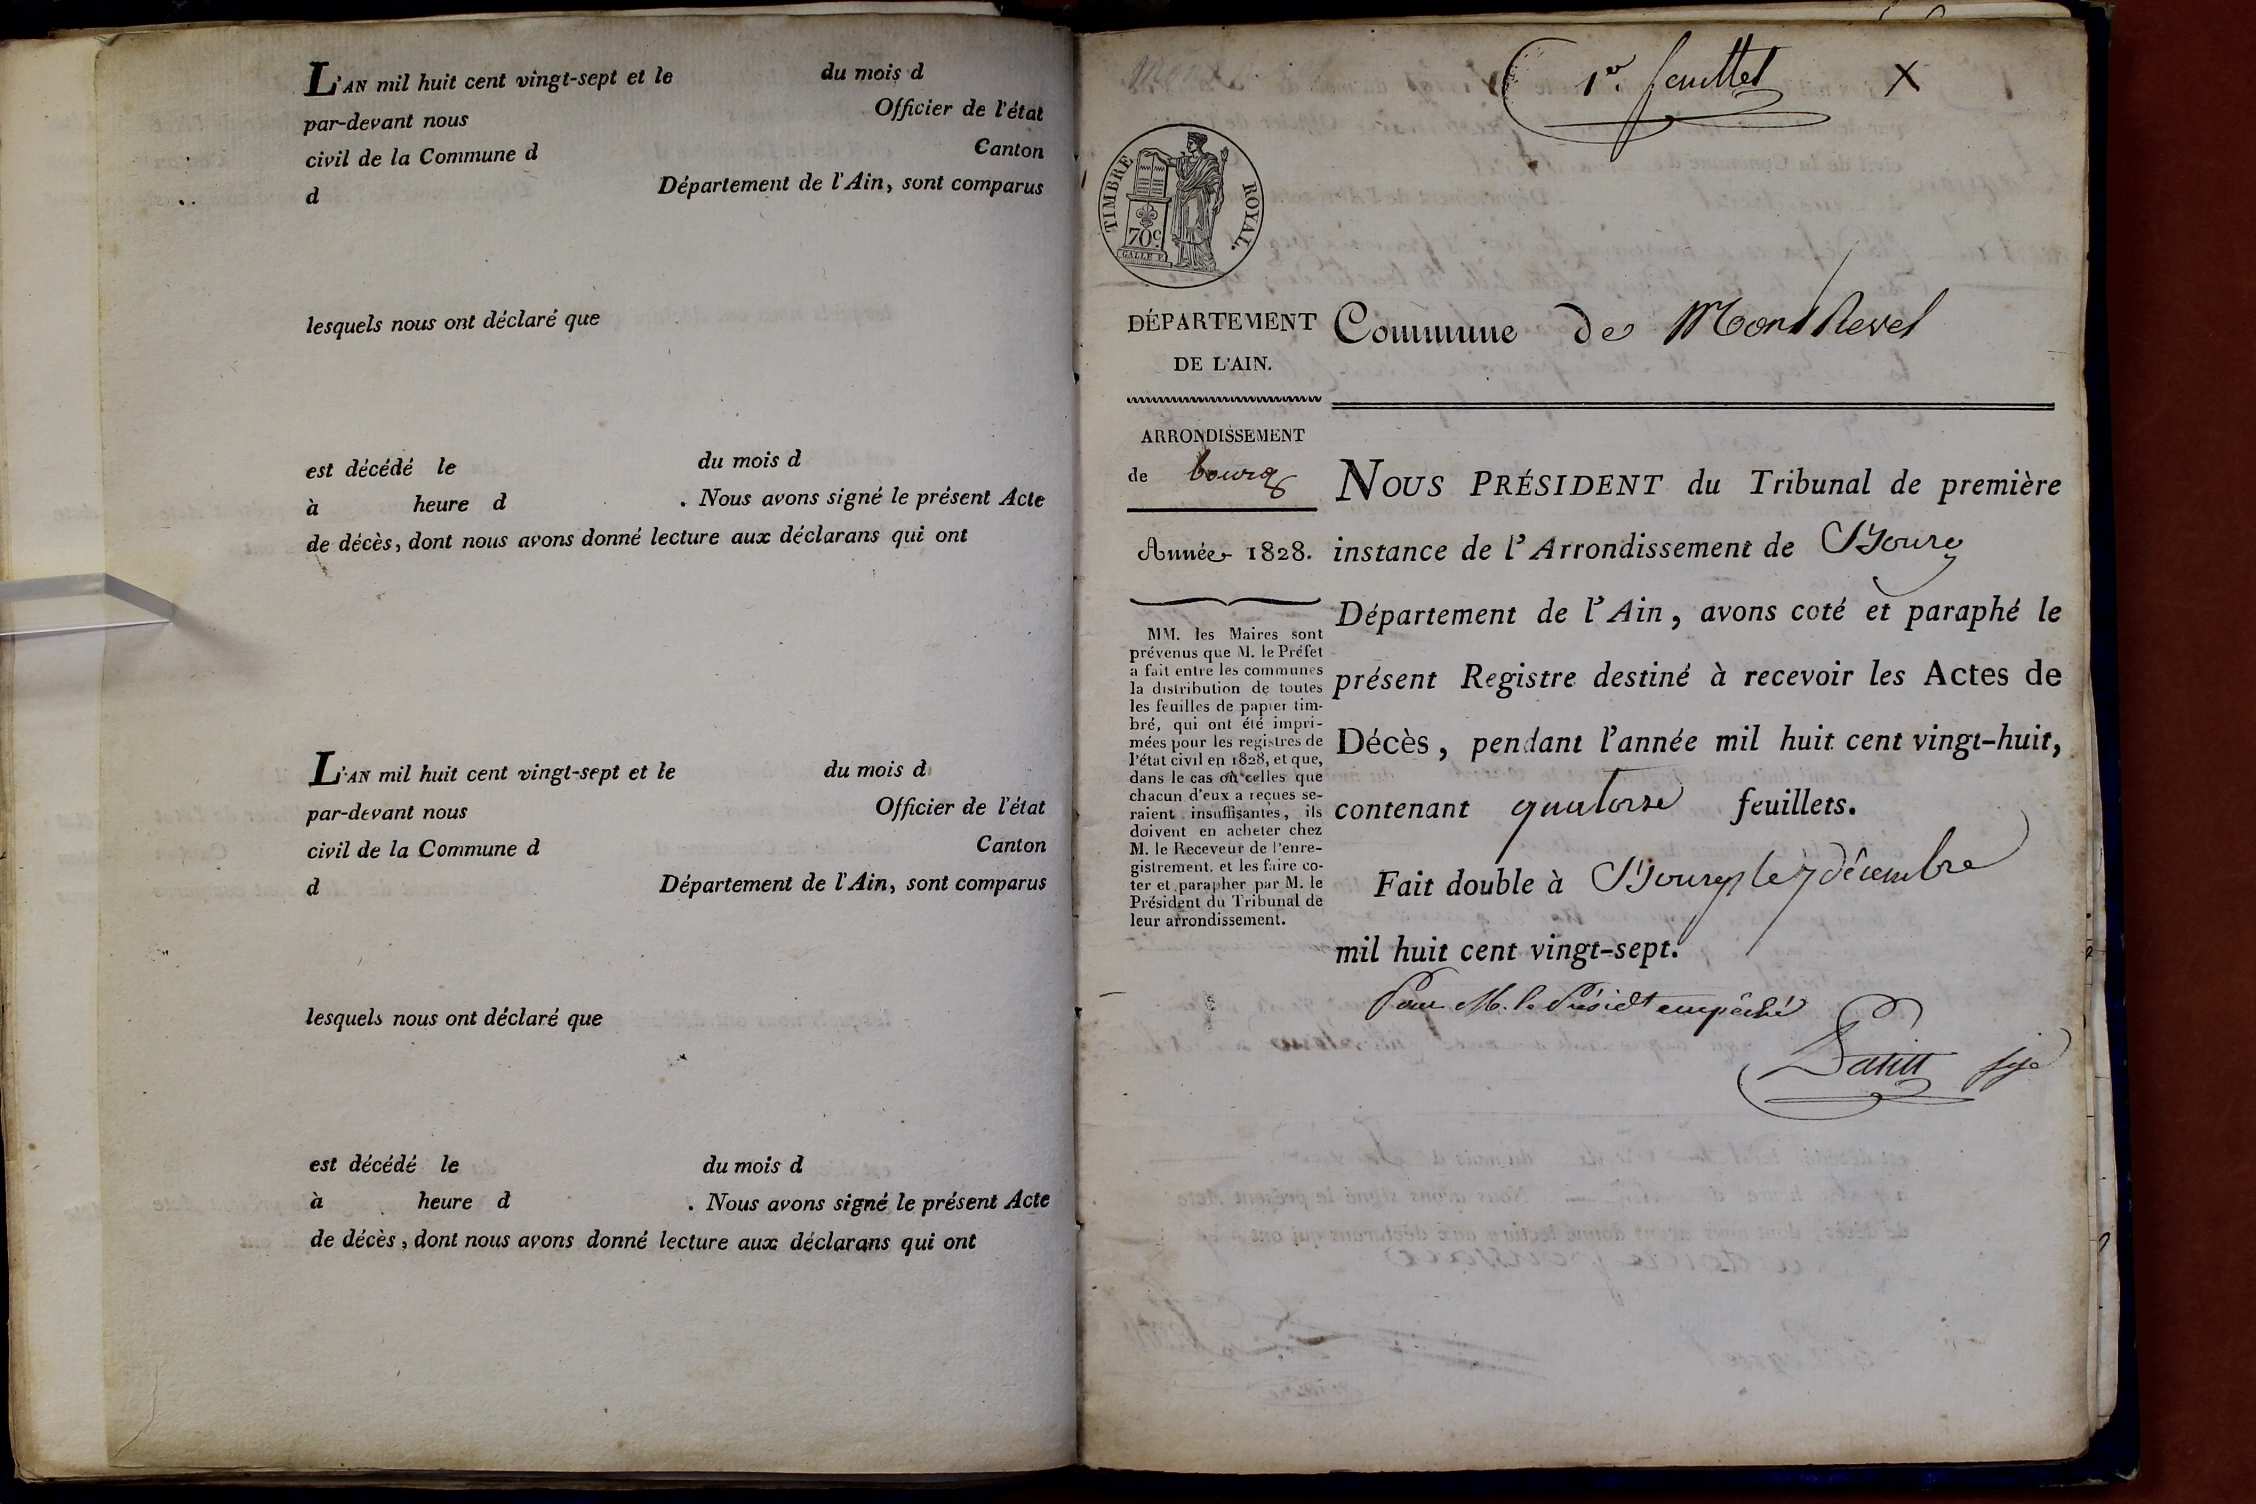 L'AN mil huit cent vingt-sept et le du mois d
par-devant nous Officier de l'état
civil de la Commune d Canton
d Département de l'Ain, sont comparus
lesquels nous ont déclaré que
est décédé le du mois d
à heure d . Nous avons signé le présent Acte
de décès, dont nous avons donné lecture aux déclarans qui ont
L'AN mil huit cent vingt-sept et le du mois d
par-devant nous Officier de l'état
civil de la Commune d Canton
d Département de l'Ain, sont comparus
lesquels nous ont déclaré que
est décédé le du mois d
à heure d . Nous avons signé le présent Acte
de décès, dont nous avons donné lecture aux déclarans qui ont
1er. feuillet X
TIMBRE ROYAL.
70c.
GALLE F.
DÉPARTEMENT
DE L'AIN.
ARRONDISSEMENT
de bourg
Année 1828.
MM. les Maires sont
prévenus que M. le Préfet
a fait entre les communes
la distribution de toutes
les feuilles de papier tim-
bré, qui ont été impri-
mées pour les registres de
l'état civil en 1828, et que,
dans le cas où celles que
chacun d'eux a reçues se-
raient insuffisantes, ils
doivent en acheter chez
M. le Receveur de l'enre-
gistrement, et les faire co-
ter et parapher par M. le
Président du Tribunal de
leur arrondissement.
Commune de Montrevel
NOUS PRÉSIDENT du Tribunal de première
instance de l'Arrondissement de Bourg
Département de l'Ain, avons coté et paraphé le
présent Registre destiné à recevoir les Actes de
Décès, pendant l'année mil huit cent vingt-huit,
contenant quatorze feuillets.
Fait double à Bourg le 7 décembre
mil huit cent vingt-sept.
Pour M. le Présidt empêché